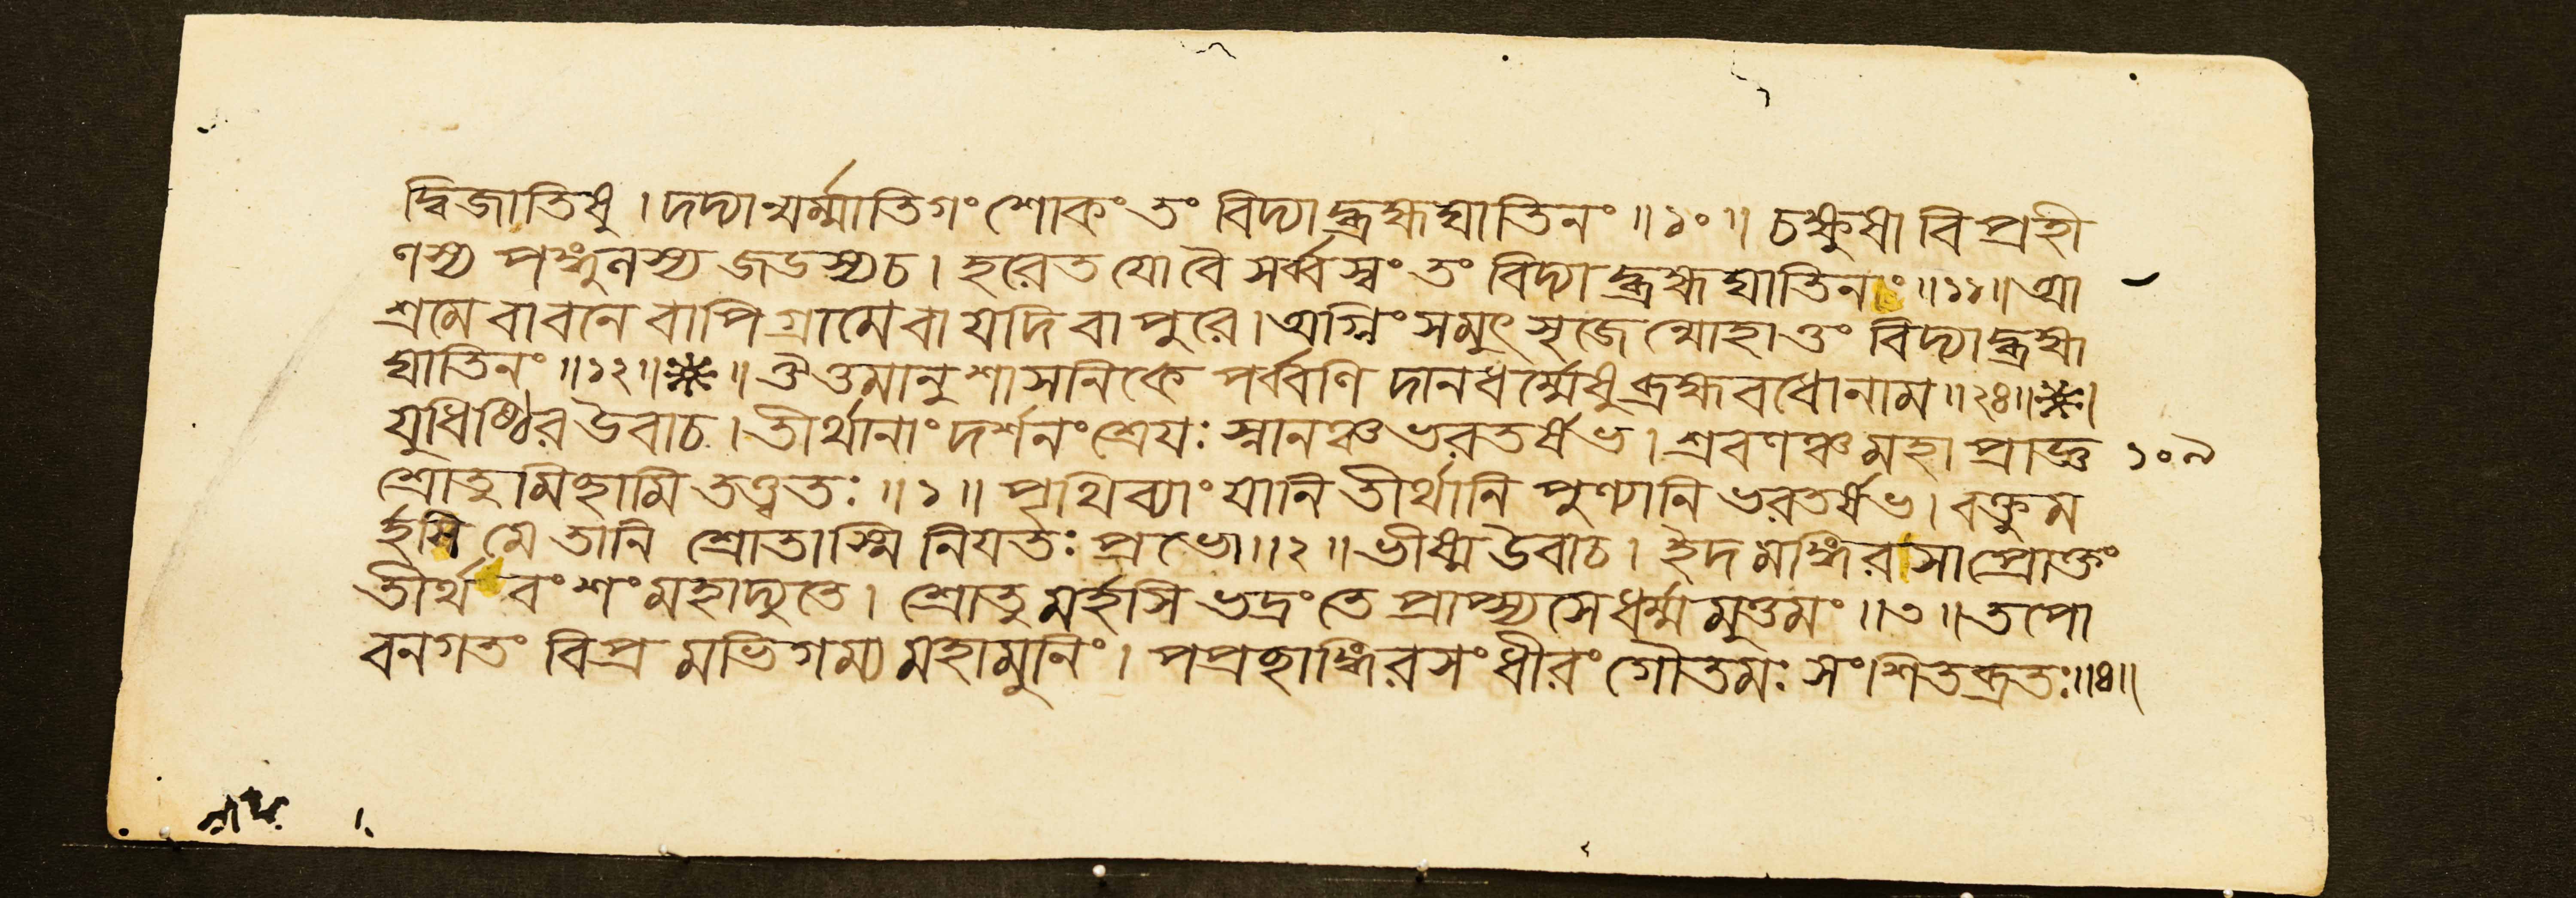 দ্বিজাতিষু । দদ্যান্মর্ম্মাতিগং শোকং তং বিদ্যাদ্ব্রহ্মঘাতিনং ॥ ১০ ॥ চক্ষুষা বিপ্রহী
ণস্য পঙ্গুনস্য জডস্য চ । হরেত যো বৈ সর্ব্বস্বং তং বিদ্যাদ্ব্রহ্মঘাতিনং ॥ ১১ ॥ আ
শ্রমে বা বনে বাপি গ্রামে বা যদি বা পুরে । অগ্নিং সমুৎসৃজেন্মোহাত্তং বিদ্যাদ্ব্রহ্ম
ঘাতিনং ॥ ১২ ॥ ※ ॥ ঐত্তমানুশাসনিকে পর্ব্ববণি দানধর্ম্মেষু ব্রহ্মবধোনাম ॥ ২৪ ॥ ※ ।
যুধিষ্ঠির উবাচ । তীর্থানাং দর্শনং শ্রেযঃ স্নানঞ্চ ভরতর্ষভ । শ্রবণঞ্চ মহাপ্রাজ্ঞ ১০৯
শ্রোতুমিচ্ছামি তত্ত্বতঃ ॥ ১ ॥ পৃথিব্যাং যানি তীর্থানি পুণ্যানি ভরতর্ষভ । বক্তুম
র্হসি মে তানি শ্রোতাস্মি নিযতঃ প্রভো ॥ ২ ॥ ভীষ্ম উবাচ । ইদমঙ্গিরসা প্রোক্তং
তীর্থবংশং মহাদ্যুতে । শ্রোতুমর্হসি ভদ্রং তে প্রাপ্স্যসে ধর্ম্মমুত্তমং ॥ ৩ ॥ তপো
বনগতং বিপ্রমভিগম্য মহামুনিং । পপ্রচ্ছাঙ্গিরসং ধীরং গৌতমঃ সংশিতব্রতঃ ॥ ৪ ॥